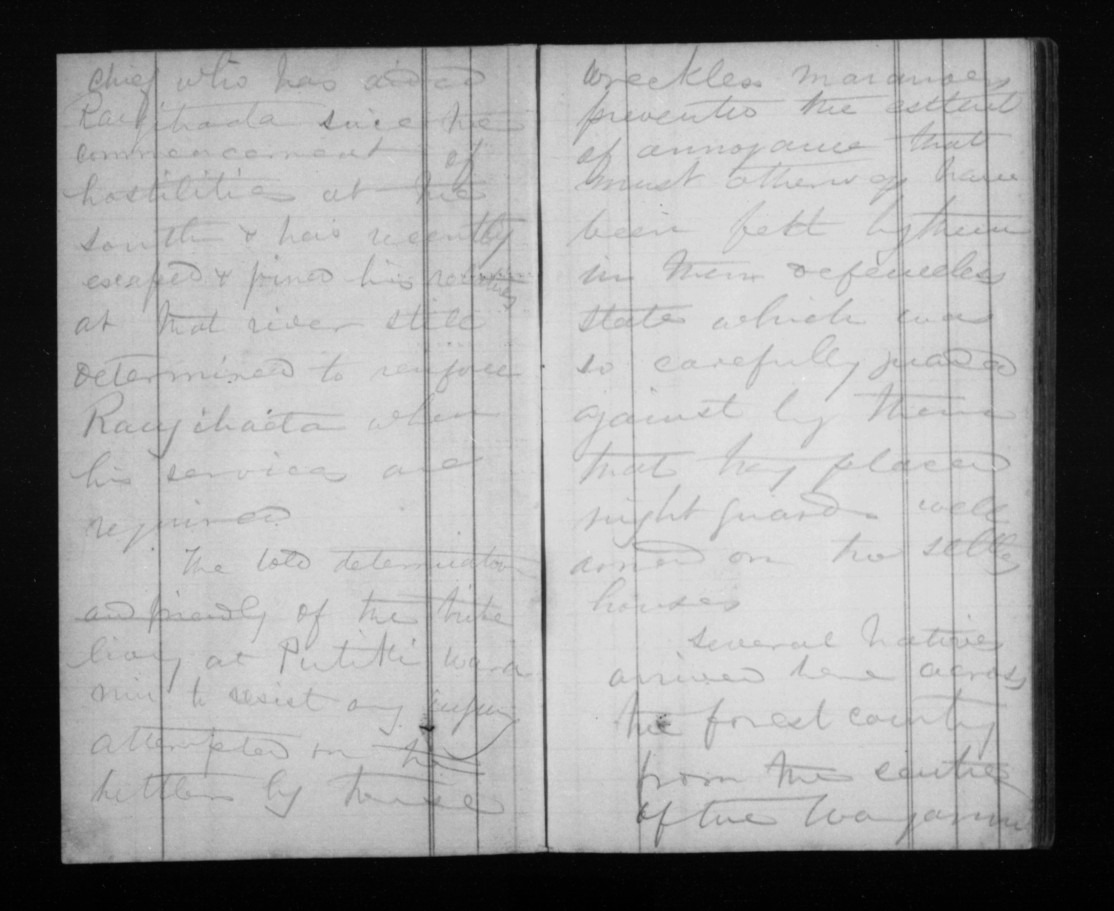 chief who has aided
Rangihaeta since the
commencement of
hostilities at the
south & has recently
escaped & joined his relatives
at that river still
determined to renforce
Rangihaeta when
his services are
required
The determination
and friendly of the tribe
living at Putiki Wara
nui to resist any injury
attempted on the
settlers by these
wreckless marauders
prevented the extent
of annoyance that
must otherway have
been felt by them
in their defenceless
state which was
so carefully guarded
against by them
that they placed
night guards well
armed on the settlers
houses
Several Natives
arrived here across
the forest country
from the centre
of the Wanganui